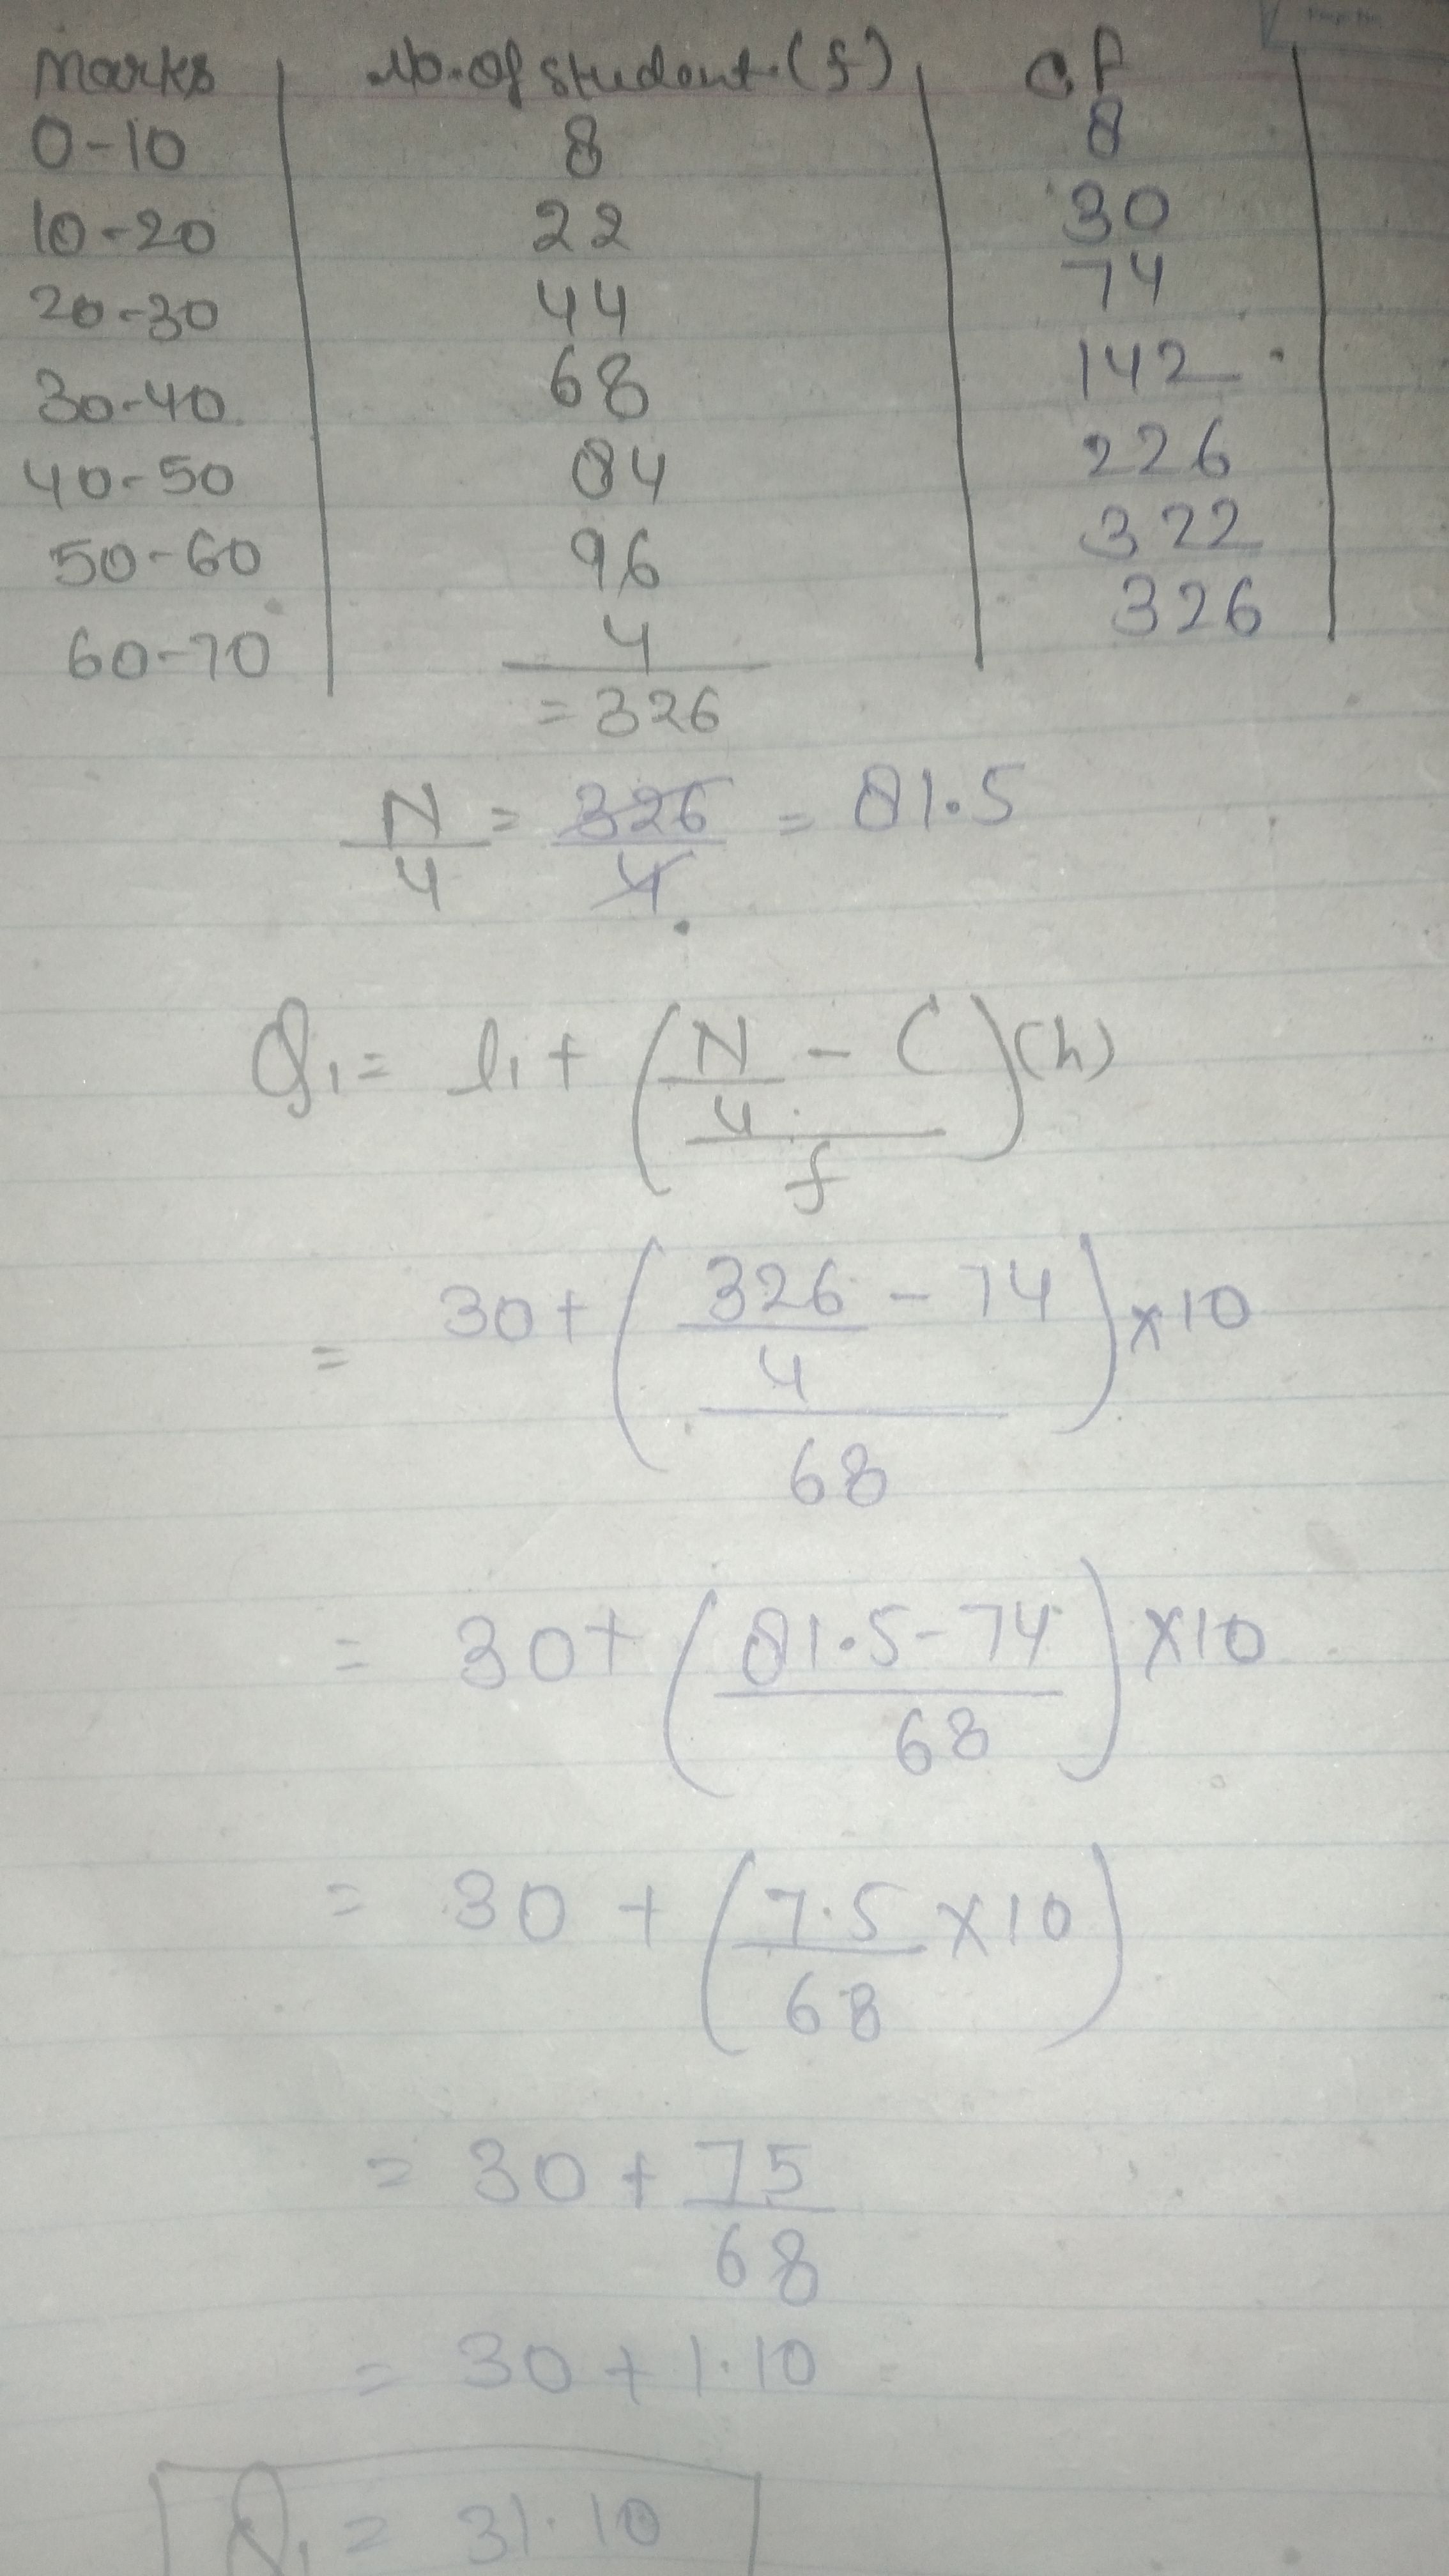 Marks No. of student (f) CF
0-10 8 8
10-20 22 30
20-30 44 74
30-40 68 142
40-50 84 226
50-60 96 322
60-70 4 326
= 326
N/4 = 326/4 = 81.5
Q₁ = l₁ + ((N/4 - C)/f)(h)
= 30 + ((326/4 - 74)/68) × 10
= 30 + ((81.5 - 74)/68) × 10
= 30 + (7.5/68 × 10)
= 30 + 75/68
= 30 + 1.10
Q₁ = 31.10